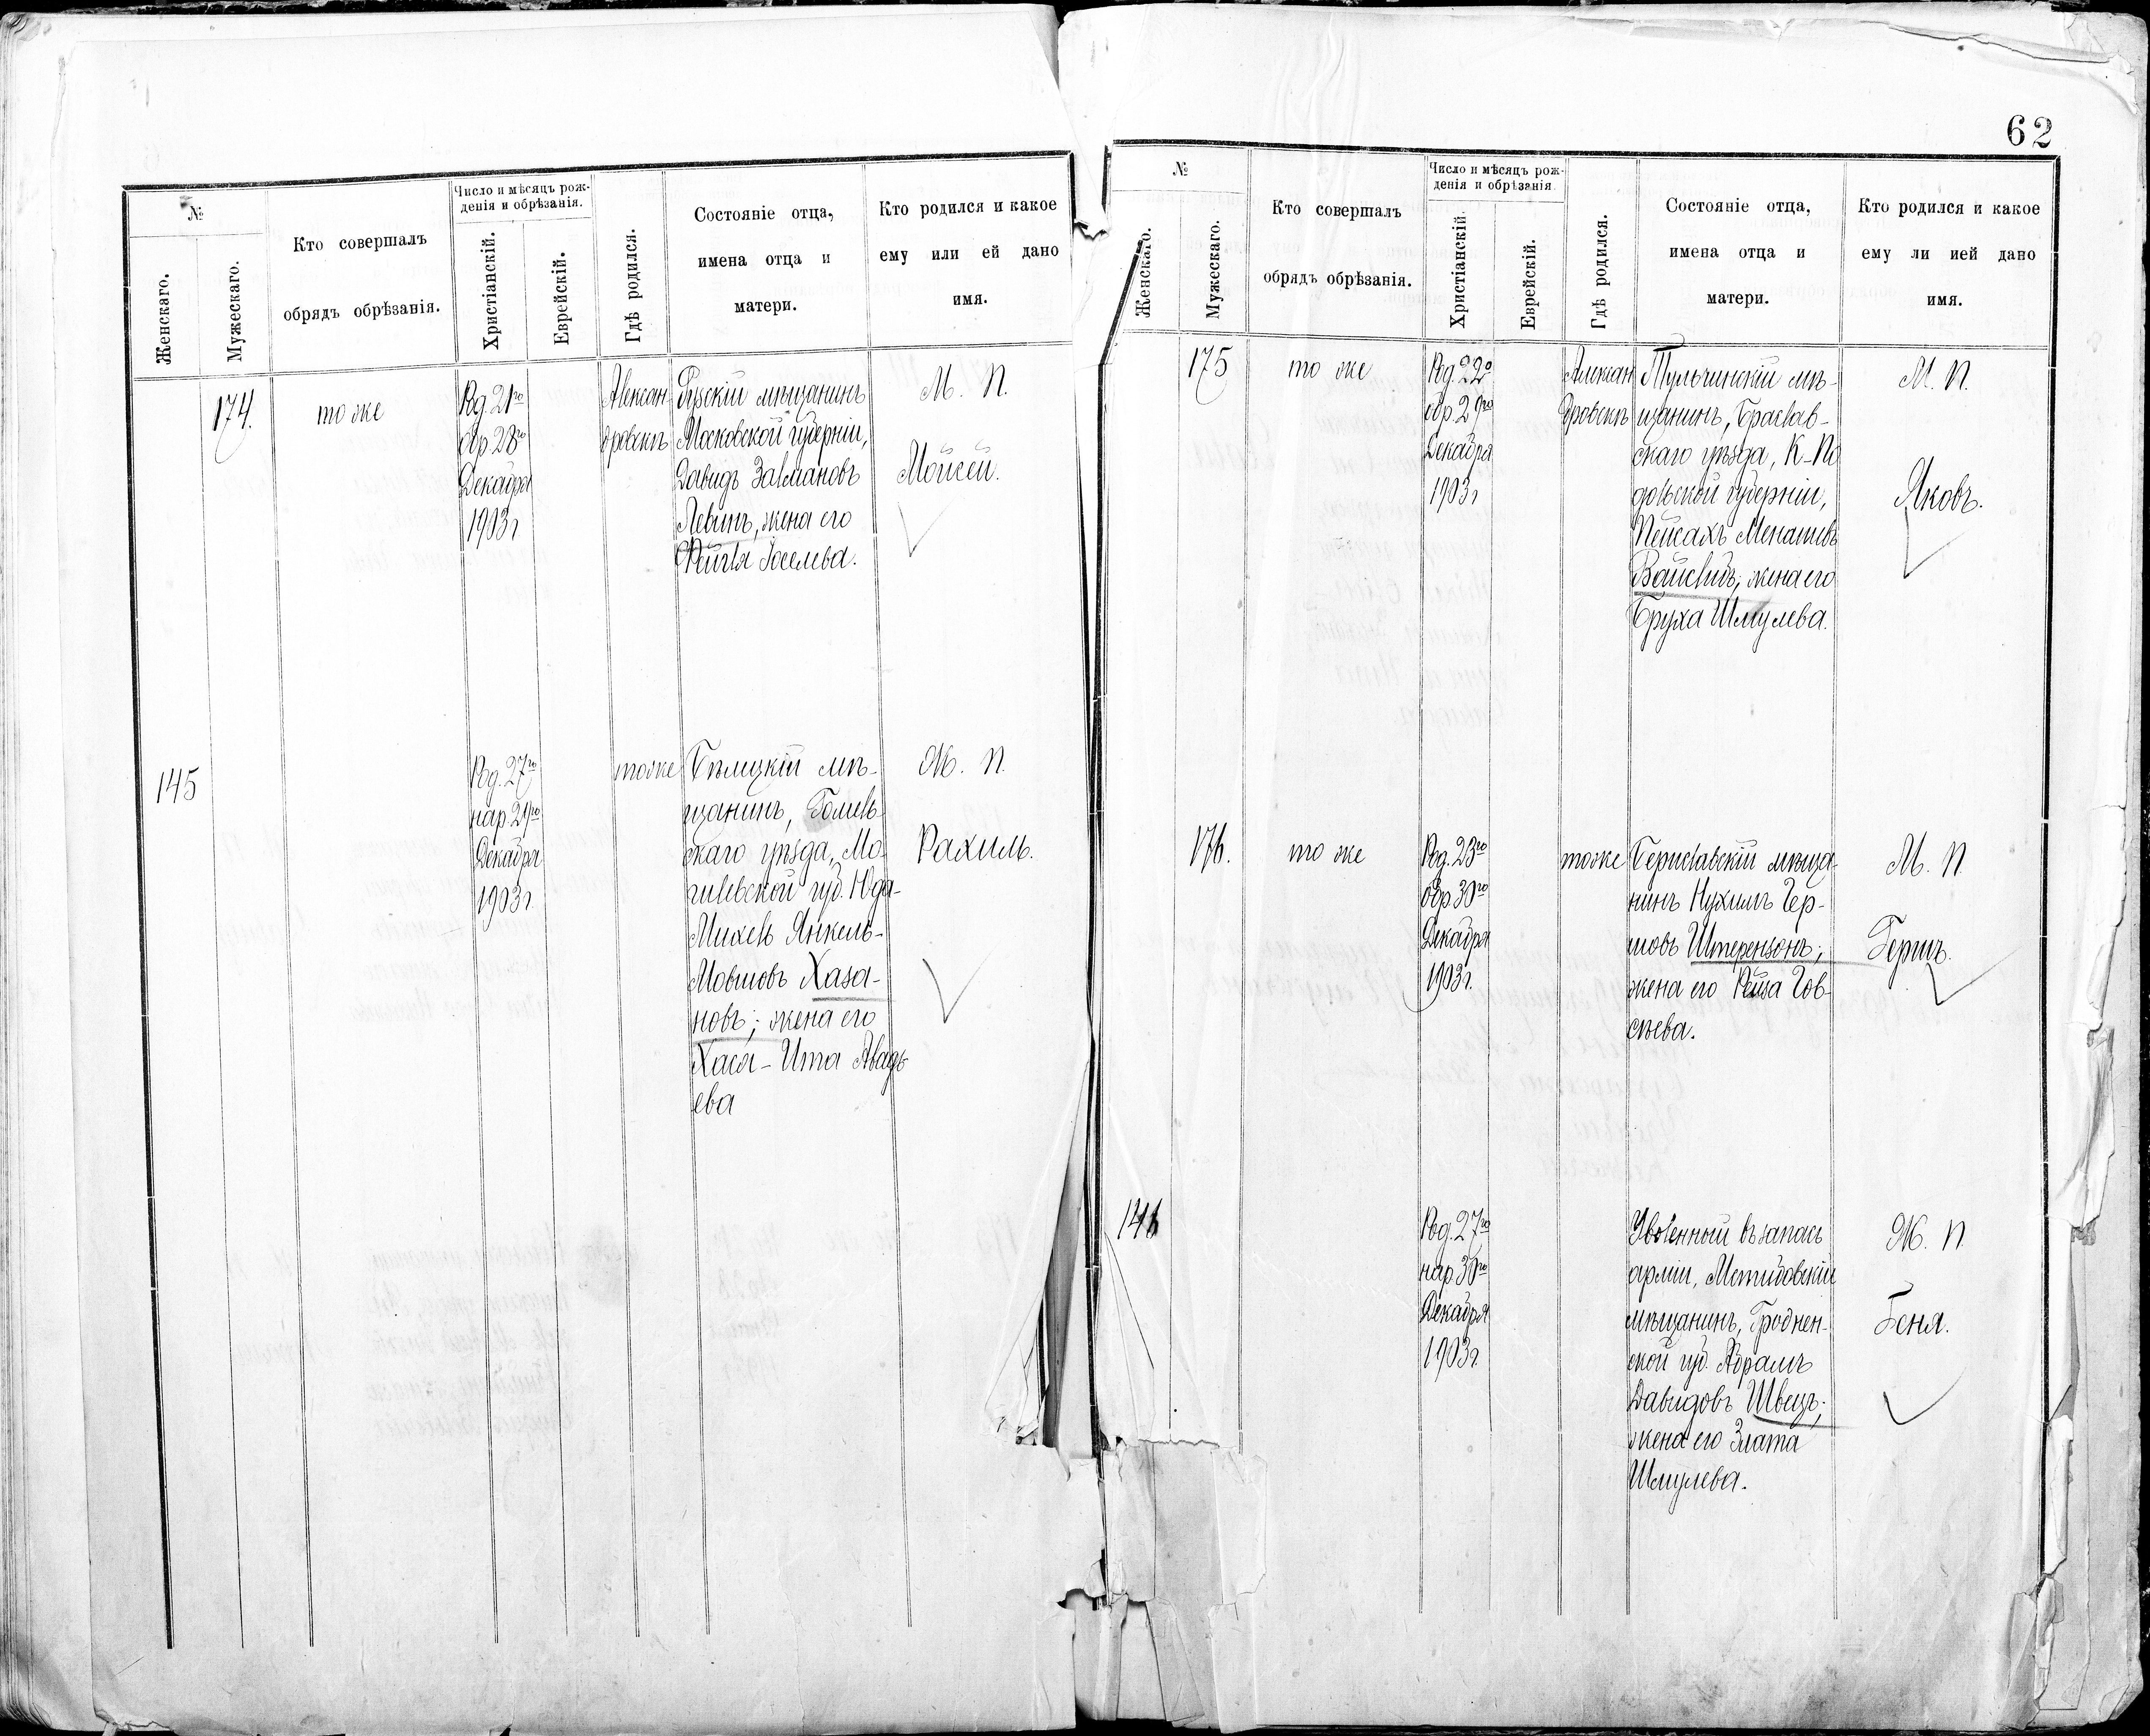 62
№
Женскаго.
Мужескаго.
Кто совершалъ
обрядъ обрѣзанія.
Число и мѣсяцъ рож-
денія и обрѣзанія.
Христіанскій.
Еврейскій.
Гдѣ родился.
Состояніе отца,
имена отца и
матери.
Кто родился и какое
ему или ей дано
имя.
174.
то же
Род. 21го
обр. 28го
Декабря
1903 г.
Алексан
дровскъ
Рузскій мѣщанинъ
Московской губерніи,
Давидъ Залмановъ
Левинъ, жена его
Фейгля Іоселева.
М. П.
Мойсей.
145
Род. 27го
нар. 29го
Декабря
1903 г.
тоже
Бѣлицкій мѣ-
щанинъ, Гомель-
скаго уѣзда, Мо-
гилевской губ. Юда-
Михель Янкель-
Мовшовъ Хаза-
новъ; жена его
Хася-Ита Авадь-
ева
Ж. П.
Рахиль.
№
Женскаго.
Мужескаго.
Кто совершалъ
обрядъ обрѣзанія.
Число и мѣсяцъ рож-
денія и обрѣзанія.
Христіанскій.
Еврейскій.
Гдѣ родился.
Состояніе отца,
имена отца и
матери.
Кто родился и какое
ему ли ией дано
имя.
175
то же
Род. 22го
обр. 29го
Декабря
1903 г
Алексан
дровскъ
Тульчинскій мѣ-
щанинъ, Брацлав-
скаго уѣзда, К-По
дольской губерніи,
Пейсахъ Менашевъ
Вайсблитъ; жена его
Бруха Шмулева.
М. П.
Яковъ.
176.
то же
Род. 23го
обр. 30го
Декабря
1903 г.
тоже
Бериславскій мѣща-
нинъ Нухимъ Гер-
шовъ Штеренzонъ;
жена его Рейза Гов-
сѣева.
М. П.
Гершъ.
146
Род. 27го
нар. 30го
Декабря
1903 г.
Уволенный въ запасъ
арміи,
мѣщанинъ, Гроднен-
ской губ. Абрамъ
Давидовъ Швецъ;
жена его Злата
Шмулева.
Ж. П.
Геня.